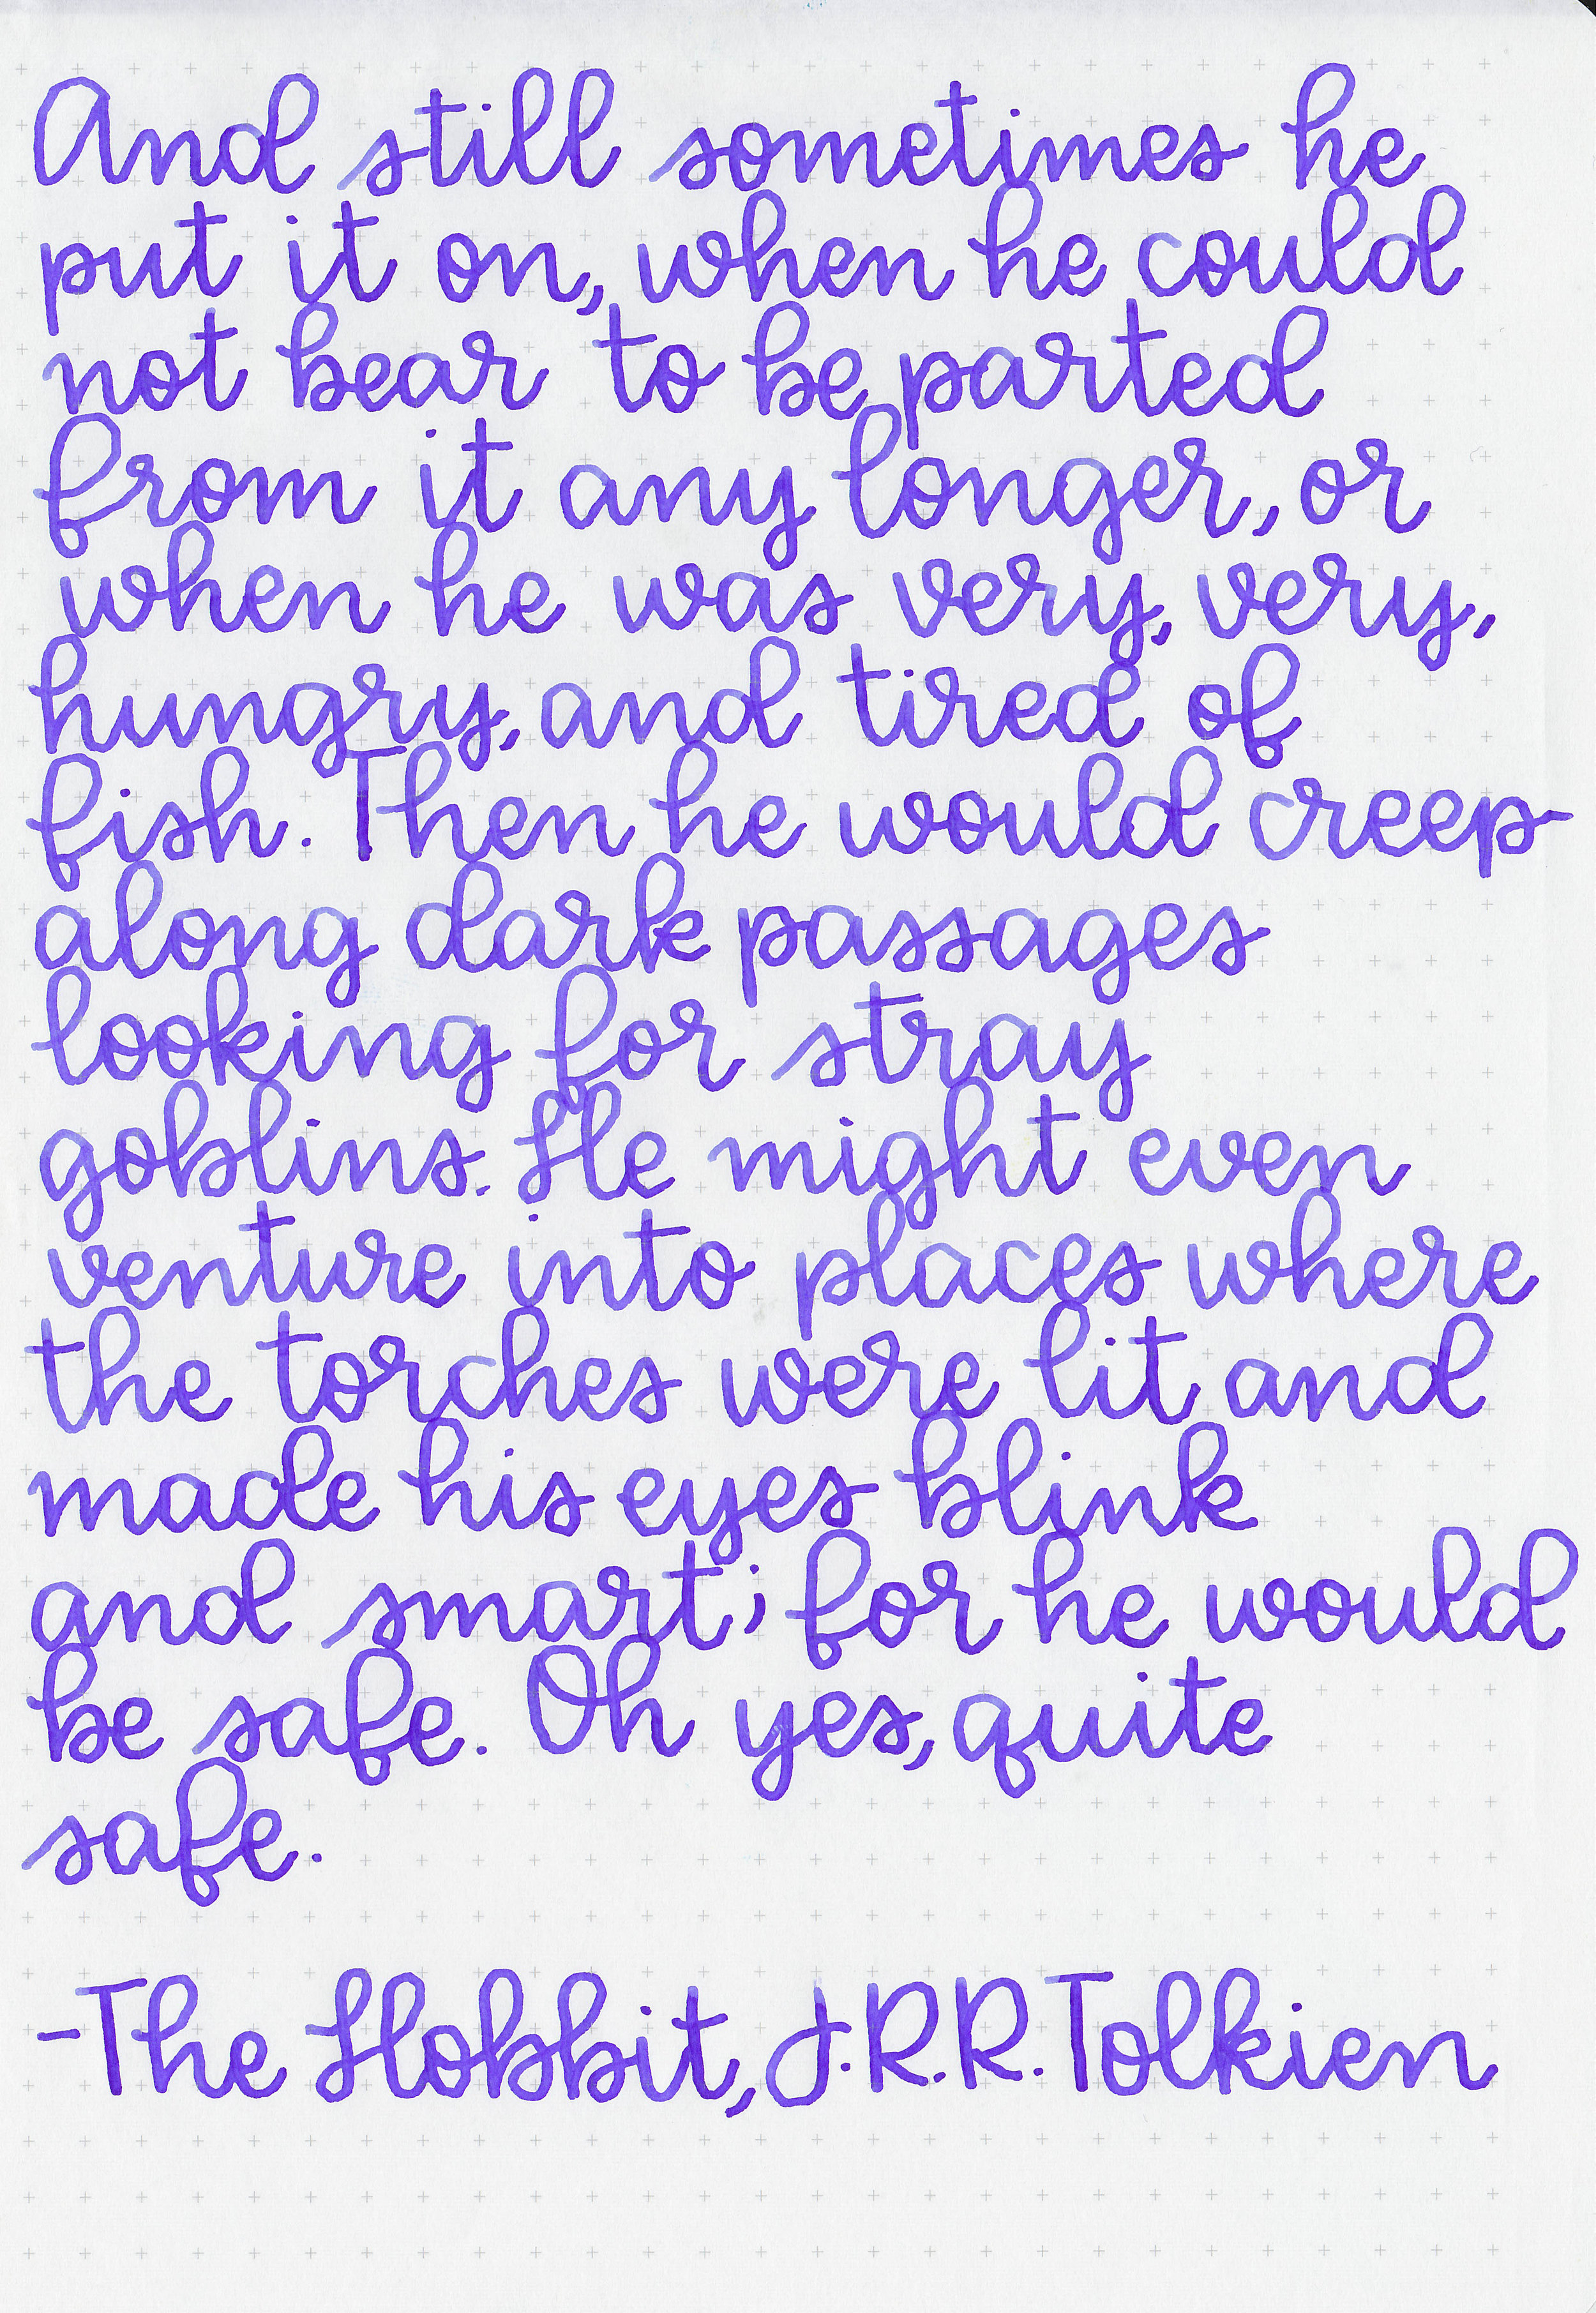 And still sometimes he
put it on, when he could
not bear to be parted
from it any longer, or
when he was very, very,
hungry, and tired of
fish. Then he would creep
along dark passages
looking for stray
goblins. He might even
venture into places where
the torches were lit and
made his eyes blink
and smart; for he would
be safe. Oh yes, quite
safe.
-The Hobbit, J.R.R. Tolkien